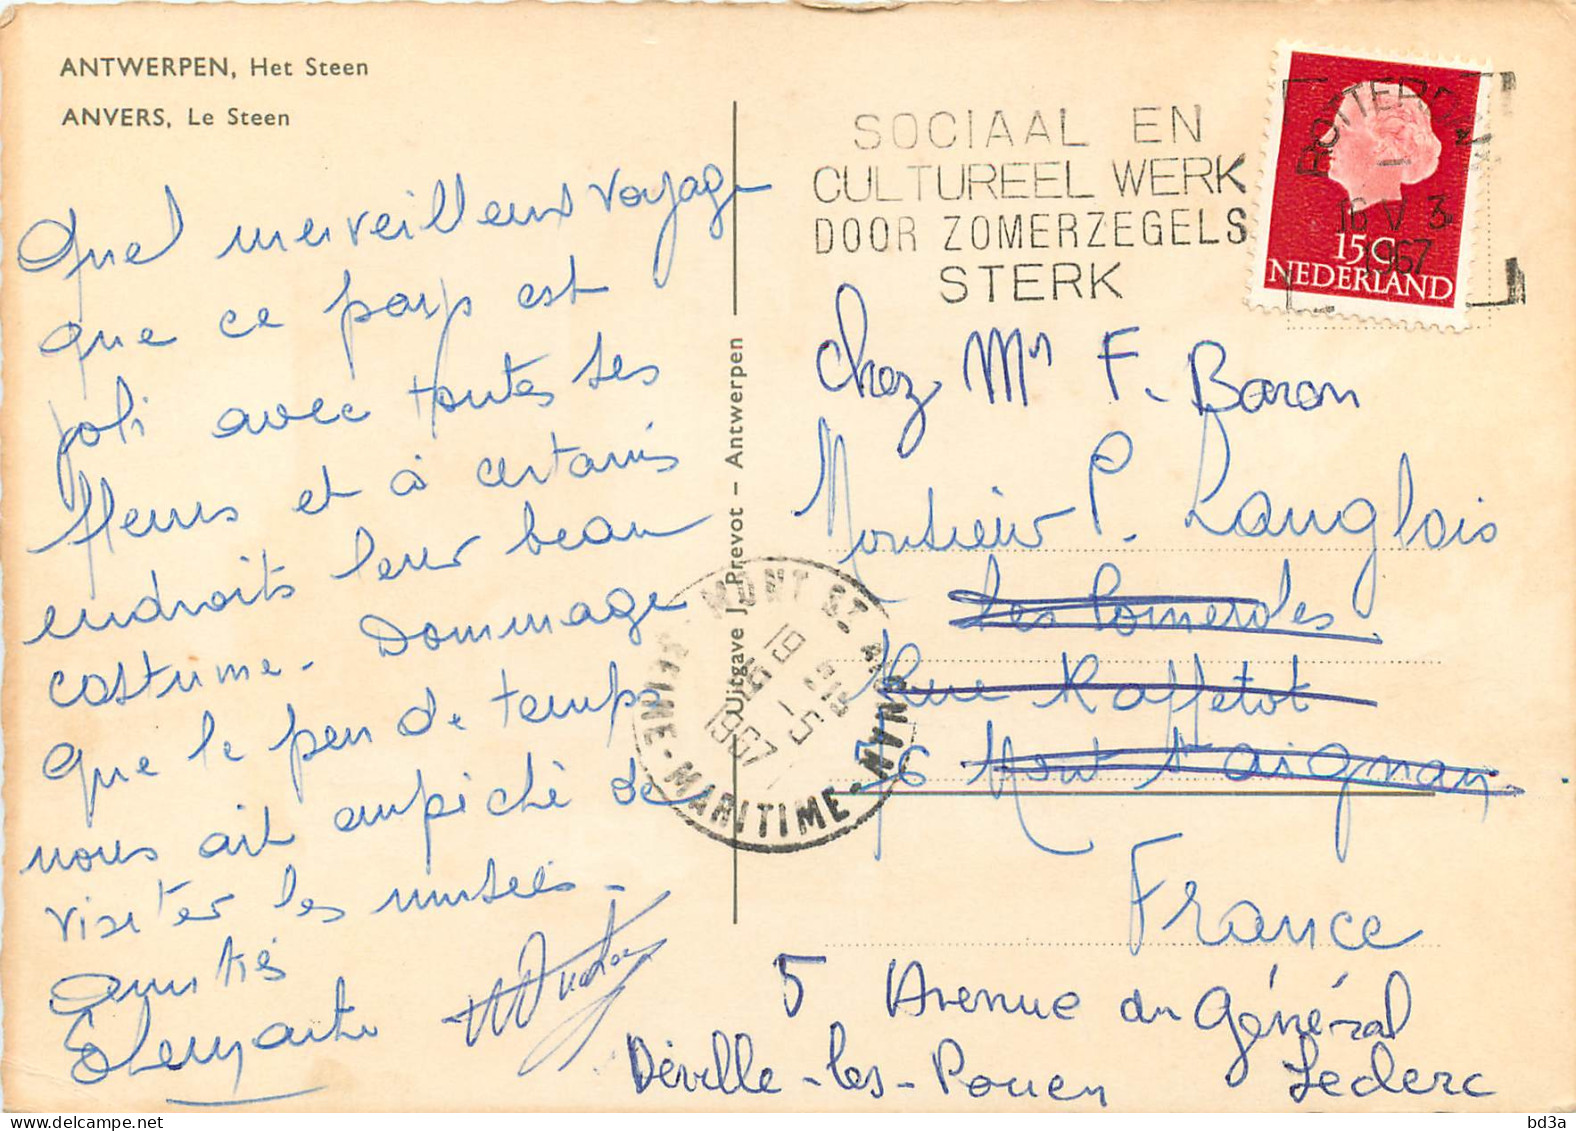 ANTWERPEN, Het Steen
ANVERS, Le Steen
Quel merveilleux voyage
que ce pays est
joli avec toutes ses
fleurs et à certains
endroits leur beau
costume - Dommage
que le peu de temps
nous ait empiché de
visiter les musées -
Amitiés
Uitgave J. Prevot - Antwerpen
SOCIAAL EN
CULTUREEL WERK
DOOR ZOMERZEGELS
STERK
ROTTERDAM
16 V 3
1967
15c
NEDERLAND
chez Mr F. Baron
Monsieur P. Langlois
Les Comerdes
Rue Raffetot
76 Mont St Aignan
France
5 Avenue du Général
Leclerc
Déville-les-Rouen
MONT ST AIGNAN
SEINE-MARITIME
19 H15
16 -5
1967
bd3a